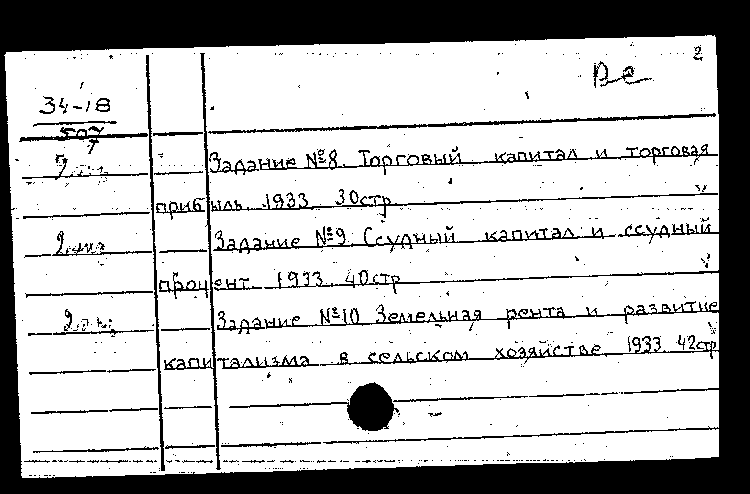 2
Ве
34-18
507
7
Задание №8. Торговый капитал и торговая
прибыль. 1933. 30стр.
2 экз
Задание №9. Ссудный капитал и ссудный
процент. 1933. 40стр
2 экз
Задание №10 Земельная рента и развитие
капитализма в сельском хозяйстве. 1933. 42стр